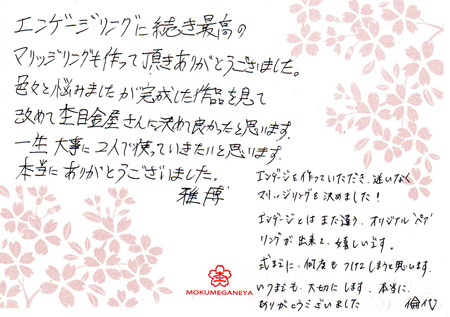 エンゲージリングに続き最高の
マリッジリングも作って頂きありがとうございました。
色々と悩みましたが完成した作品を見て
改めて杢目金屋さんに決めて良かったと思います。
一生大事に2人で使っていきたいと思います。
本当にありがとうございました。
雅博
エンゲージを作っていただき、迷いなく
マリッジリングを決めました!
エンゲージとはまた違う、オリジナルペア
リングが出来て、嬉しいです。
式までに、何度もつけてしまうと思います。
いつまでも、大切にします。本当に、
ありがとうございました
倫代
MOKUMEGANEYA